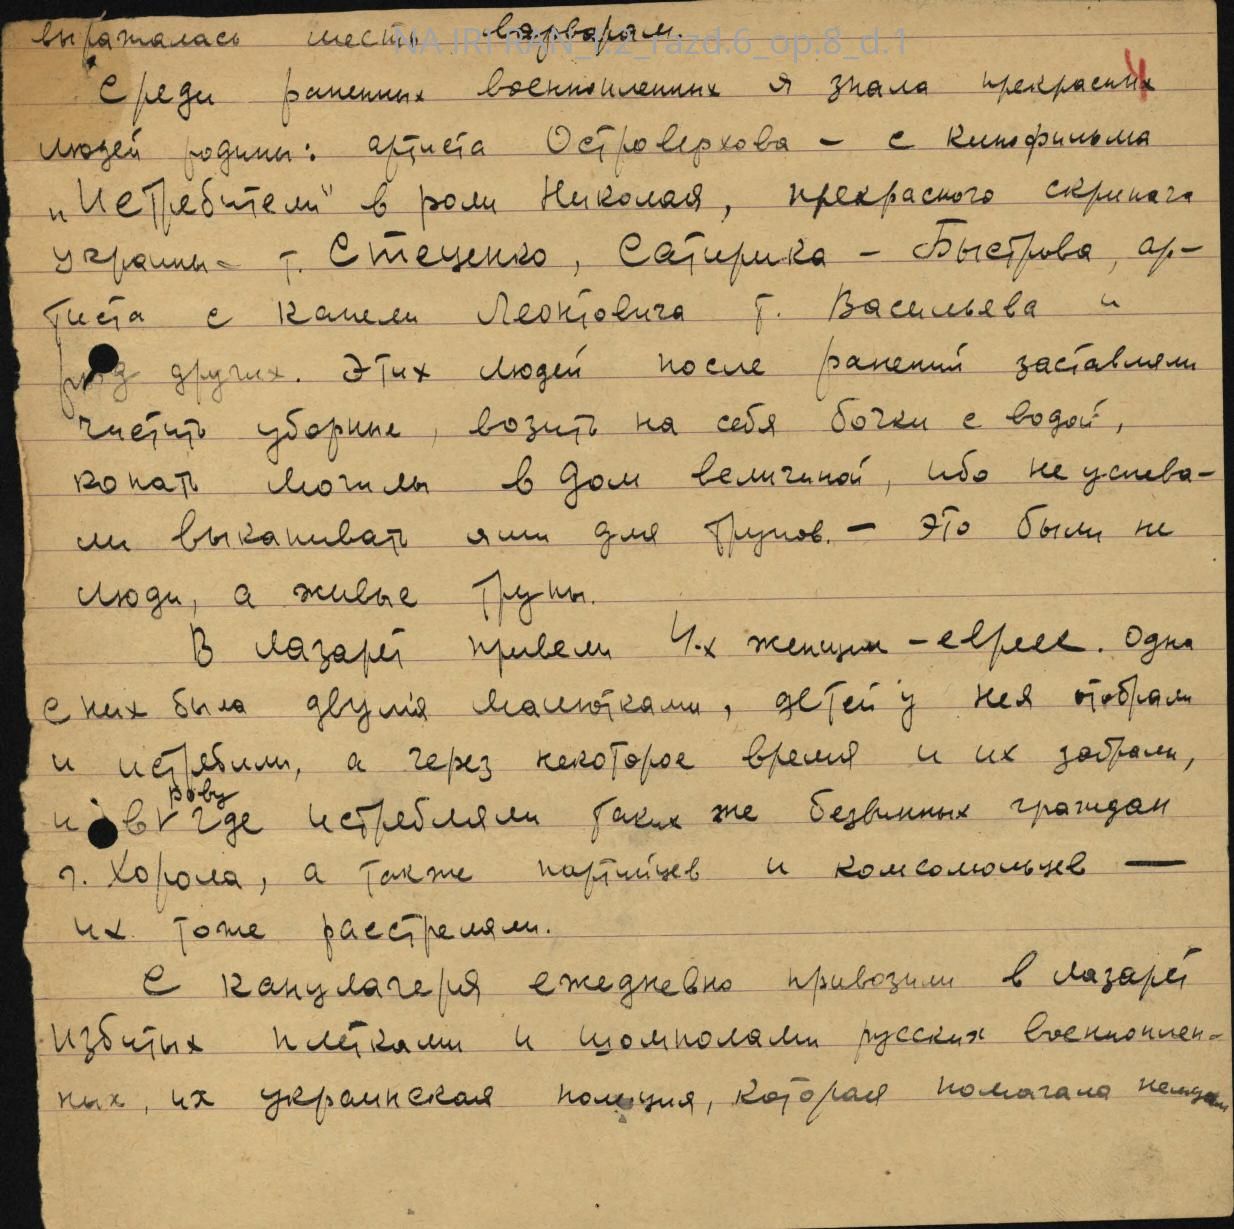 выражалась месть варварам.
NA IRI RAN_f.2_razd.6_op.8_d.1
4
Среди раненных военнопленных я знала прекрасных
людей родины: артиста Островерхова – с кинофильма
„Истребители" в роли Николая, прекрасного скрипача
украины – т. Стеценко, Сатирика – Быстрова, ар-
тиста с капели Леонтовича т. Васильева и
ряд других. Этих людей после ранений заставляли
чистить уборные, возить на себя бочки с водой,
копать могилы в дом величиной, ибо не успева-
ли выкапывать ями для трупов. – Это были не
люди, а живые трупы.
В лазарет привели 4-х женщин – евреек. Одна
с них была двумя малютками, детей у нея отобрали
и истребили, а через некоторое время и их забрали,
рову
и в где истребляли таких же безвинных граждан
г. Хорола, а также партийцев и комсомольцев —
их тоже расстреляли.
С канулагеря ежедневно привозили в лазарет
избитых плетками и шомполами русских военноплен-
ных, их украинская полиция, которая помагала немцам